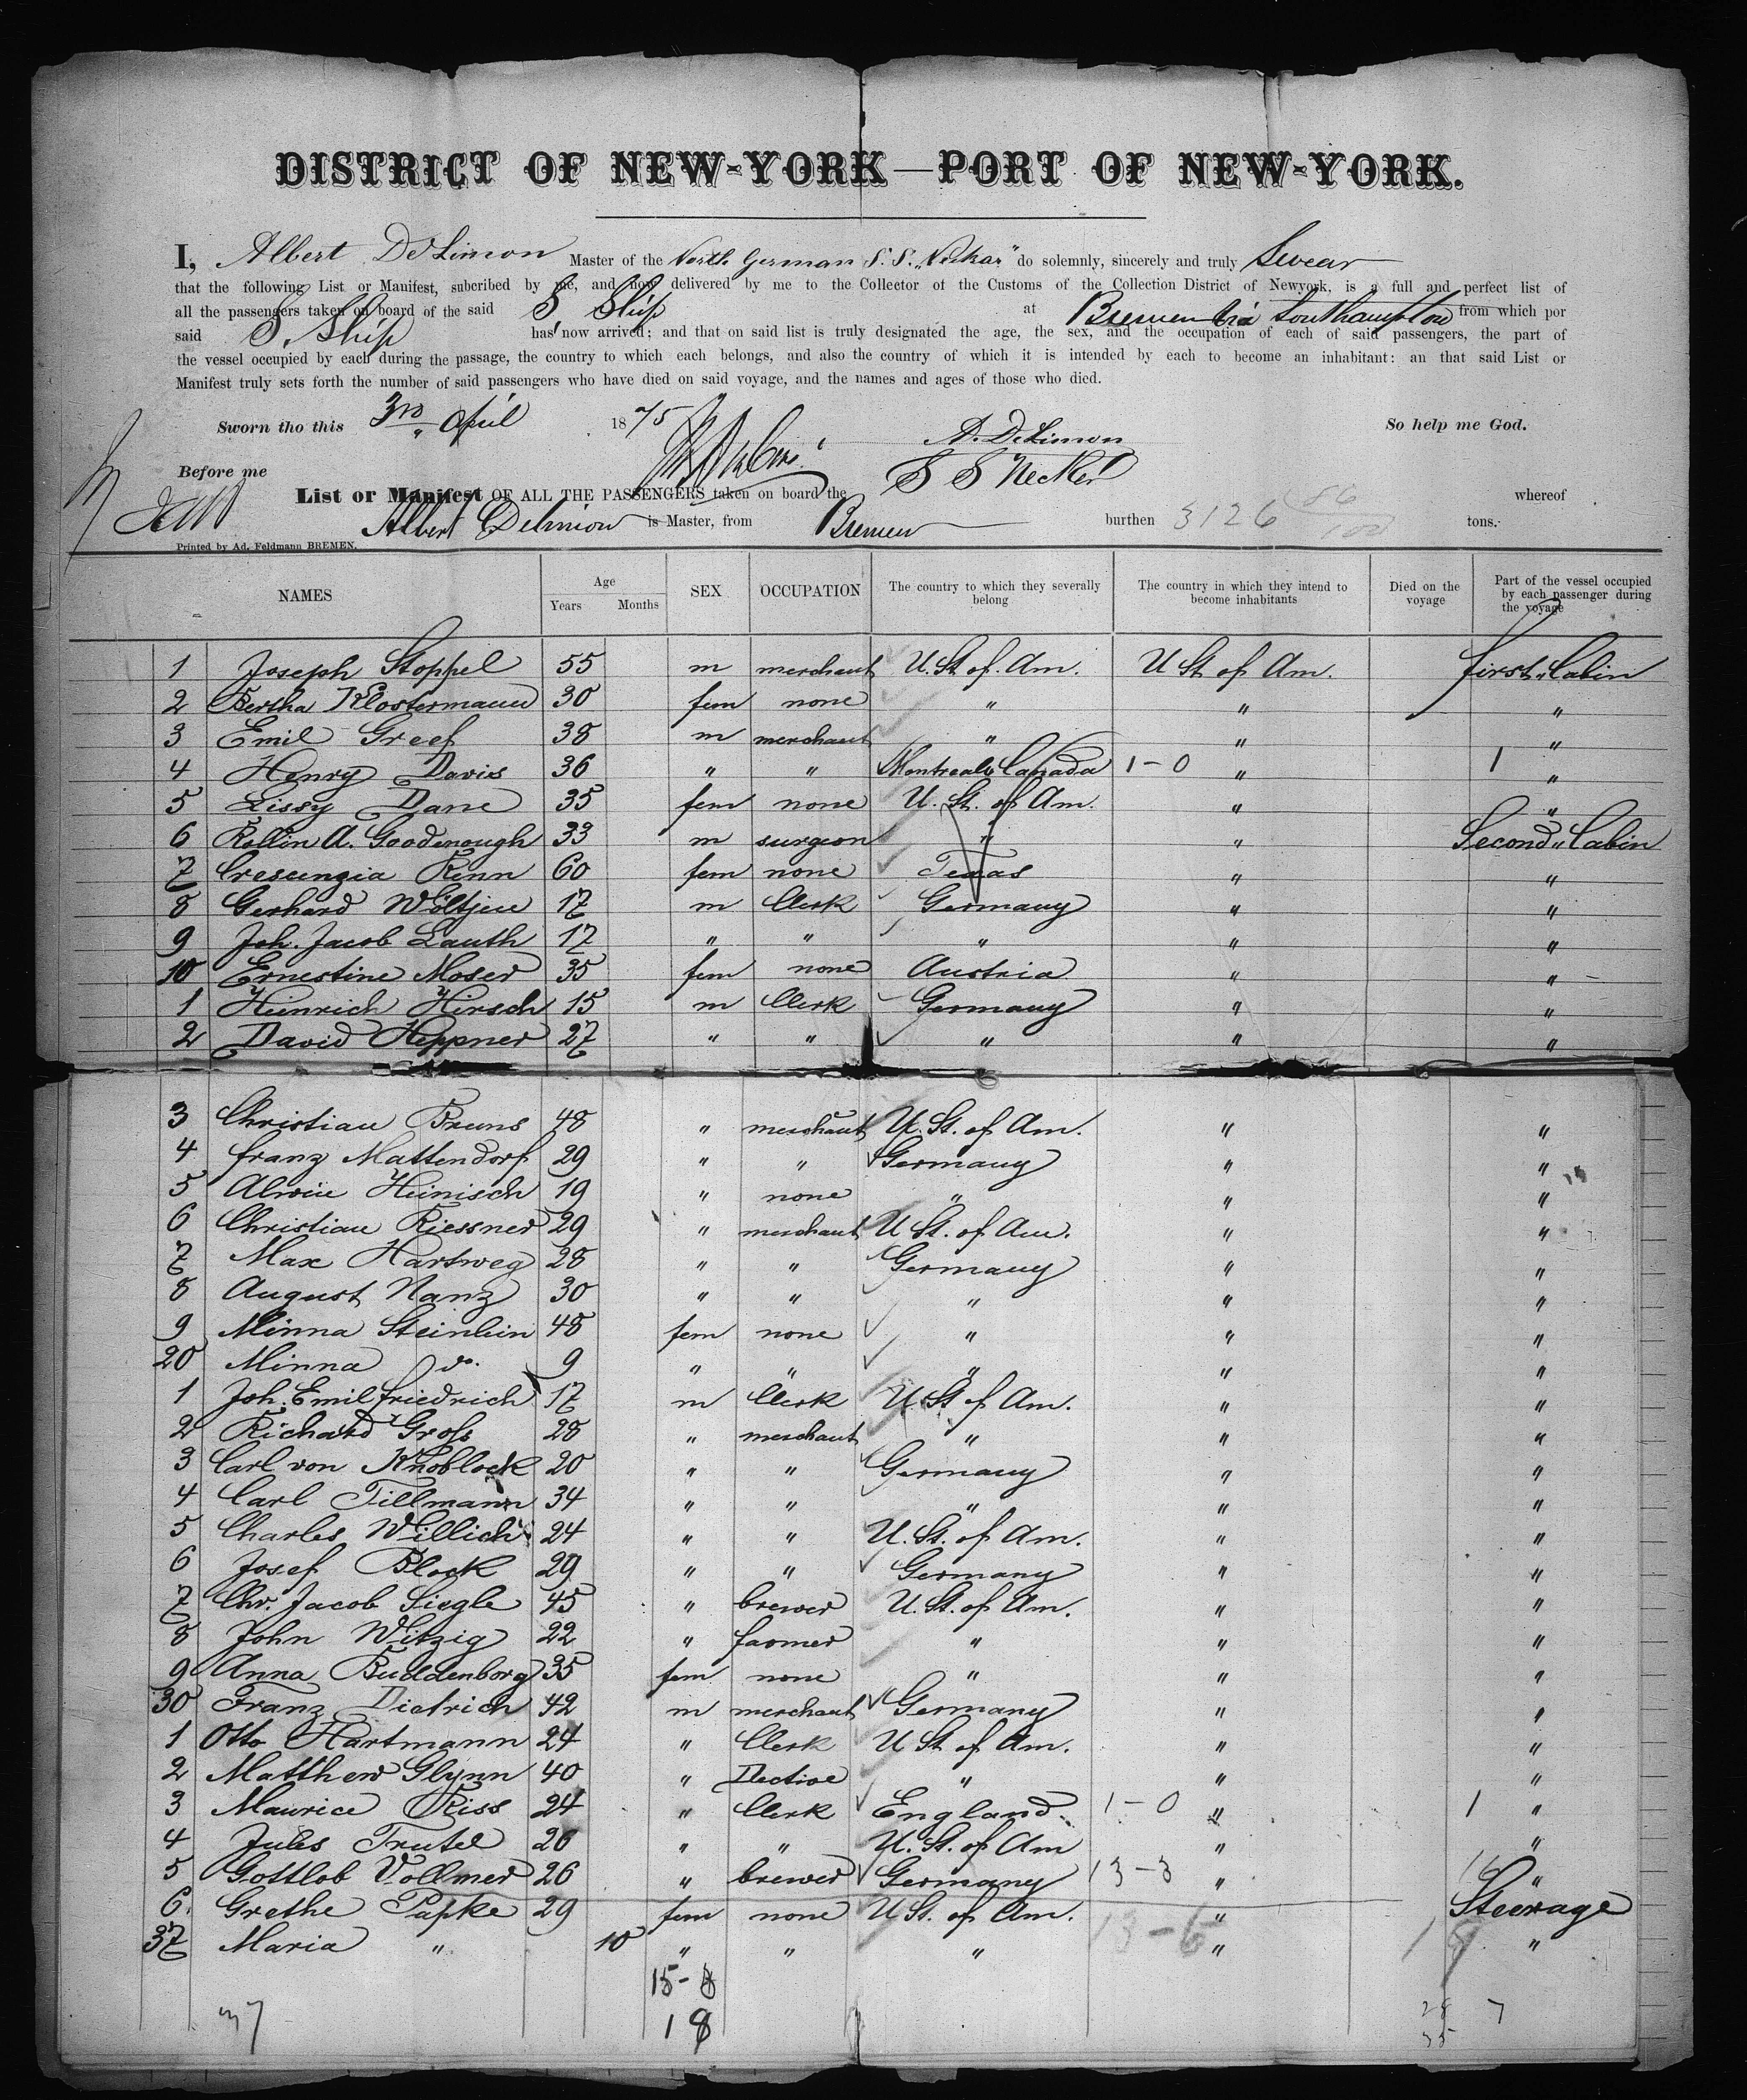 DISTRICT OF NEW-YORK—PORT OF NEW-YORK.
I, Albert DeLimon Master of the North German S. S. "Neckar" do solemnly, sincerely and truly Swear
that the following List or Manifest, subcribed by me, and now delivered by me to the Collector of the Customs of the Collection District of Newyork, is a full and perfect list of
all the passengers taken on board of the said S Ship at Bremen via Southampton from which por
said S. Ship has now arrived; and that on said list is truly designated the age, the sex, and the occupation of each of said passengers, the part of
the vessel occupied by each during the passage, the country to which each belongs, and also the country of which it is intended by each to become an inhabitant: an that said List or
Manifest truly sets forth the number of said passengers who have died on said voyage, and the names and ages of those who died.
Sworn tho this 3rd April 1875 A. DeLimon So help me God.
Before me
List or Manifest OF ALL THE PASSENGERS taken on board the S S Necker whereof
Albert Delimon is Master, from Bremen burthen 3126 56/100 tons.
Printed by Ad. Feldmann BREMEN.
NAMES Age Years Months SEX OCCUPATION The country to which they severally belong The country in which they intend to become inhabitants Died on the voyage Part of the vessel occupied by each passenger during the voyage
1 Joseph Stoppel 55 m merchant U. St. of. Am. U St of Am. first "Cabin
2 Bertha Klostermann 30 fem none " " "
3 Emil Greef 38 m merchant " " "
4 Henry Davis 36 " " Montreal Canada 1-0 " 1 "
5 Lissy Dane 35 fem none U. St. of Am. " "
6 Rollin A. Goodenough 33 m surgeon " " Second "Cabin
7 Crescenzia Renn 60 fem none Texas " "
8 Gerhard Wöltjen 17 m Clerk Germany " "
9 Joh. Jacob Lauth 17 " " " " "
10 Ernestine Moser 35 fem none Austria " "
1 Heinrich Hirsch 15 m Clerk Germany " "
2 David Heppner 27 " " " " "
3 Christian Bruns 48 " merchant U. St. of Am. " "
4 franz Mattendorf 29 " " Germany " "
5 Alwin Heinisch 19 " none " " "
6 Christian Riessner 29 " merchant U St. of Am. " "
7 Max Hartweg 28 " " Germany " "
8 August Nanz 30 " " " " "
9 Minna Steinlein 48 fem none " " "
20 Minna do. 9 " " " " "
1 Joh. Emil friedrich 17 m Clerk U. St of Am. " "
2 Richard Gross 28 " merchant " " "
3 Carl von Knoblock 20 " " Germany " "
4 Carl Tillmann 34 " " " " "
5 Charles Willich 24 " " U. St. of Am. " "
6 Josef Block 29 " " Germany " "
7 Chr. Jacob Siegle 45 " brewer U. St. of Am. " "
8 John Witzig 22 " farmer " " "
9 Anna Buddenborg 35 fem none " " "
30 Franz Dietrich 42 m merchant Germany " "
1 Otto Hartmann 24 " Clerk U St of Am. " "
2 Matthew Glynn 40 " Dective " " "
3 Maurice Riss 24 " Clerk England. 1-0 " 1 "
4 Jules Trutel 26 " " U. St. of Am " "
5 Gottlob Vollmer 26 " brewer Germany 13-3 " "
6. Grethe Papke 29 fem none U St. of Am. " Steerage
37 Maria " 10 " " " 13-6 " "
15-
18
37
28 7
35